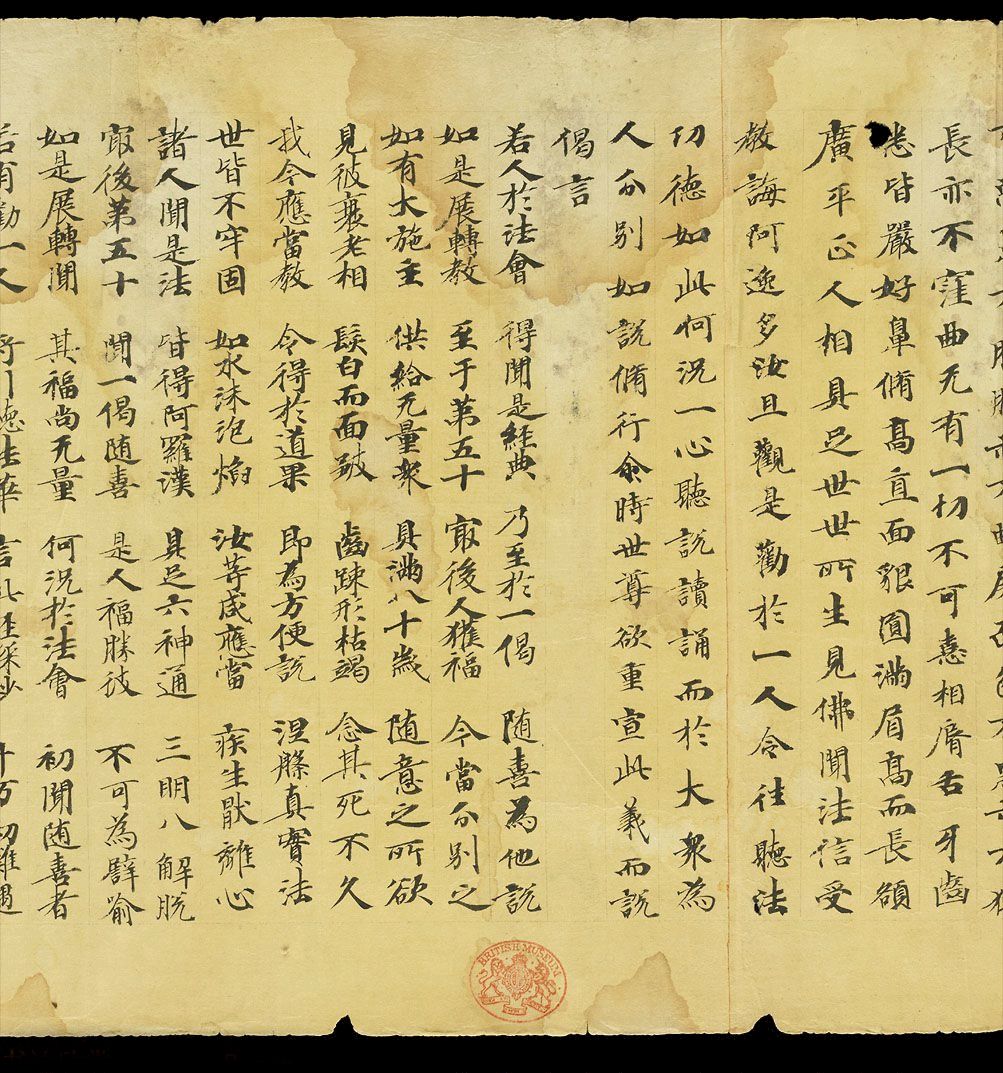 長亦不窪曲无有一切不可憙相脣舌牙齒
悉皆嚴好鼻脩高直面貌圓滿眉高而長額
廣平正人相具足世世所生見佛聞法信受
教誨阿逸多汝且觀是勸於一人令往聽法
功德如此何況一心聽說讀誦而於大衆為
人分別如說脩行尒時世尊欲重宣此義而說
偈言
若人於法會 得聞是經典 乃至於一偈 随喜為他說
如是展轉教 至于第五十 冣後人獲福 今當分別之
如有大施主 供給无量衆 具滿八十歲 随意之所欲
見彼衰老相 髮白而面皺 齒踈形枯竭 念其死不久
我今應當教 令得於道果 即為方便說 涅槃真實法
世皆不牢固 如水沫泡焰 汝等咸應當 疾生厭離心
諸人聞是法 皆得阿羅漢 具足六神通 三明八解脫
冣後第五十 聞一偈随喜 是人福勝彼 不可為譬喻
如是展轉聞 其福尚无量 何況於法會 初聞随喜者
若有勸一人 將引聽法華 言此經深妙 千万劫難遇
BRITISH MUSEUM